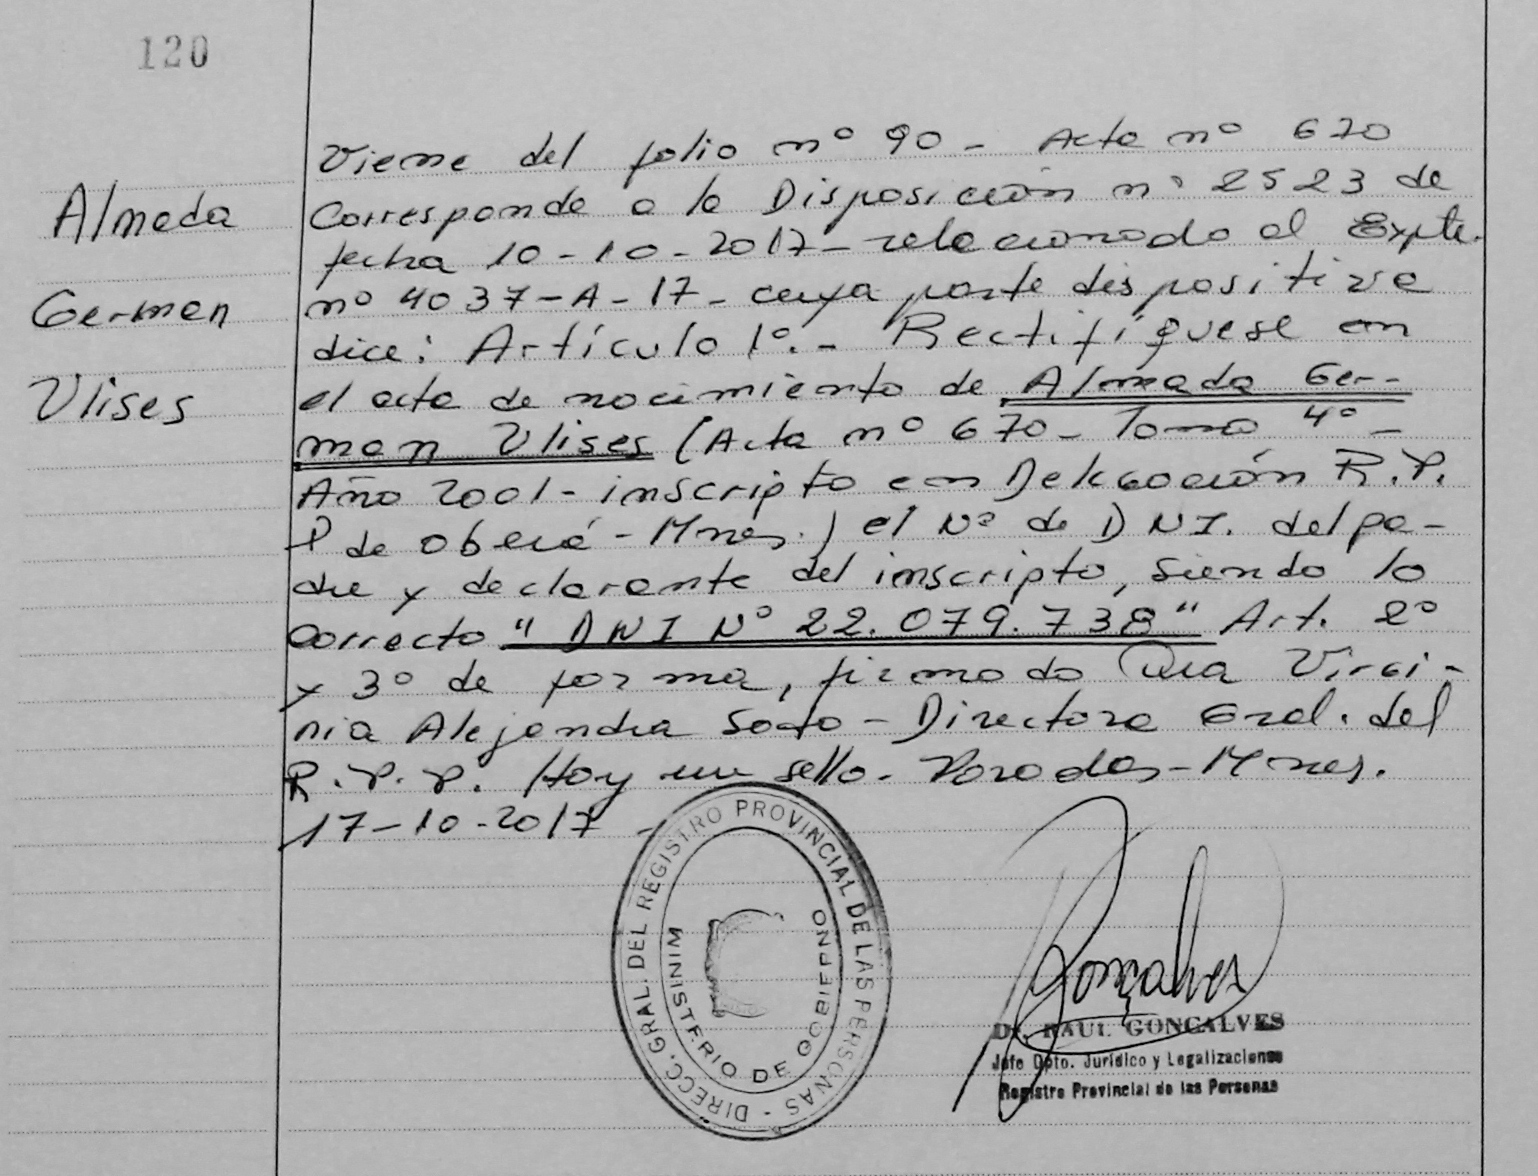 120
Almada
German
Ulises
Viene del folio nº 90 - Acta nº 670
Corresponde a la Disposición nº 2523 de
fecha 10-10-2017 - relacionado al Expte.
nº 4037-A-17 - cuya parte dispositiva
dice: Artículo 1º.- Rectifíquese en
el acta de nacimiento de Almada Ger-
man Ulises (Acta nº 670 - Tomo 4º -
Año 2001 - inscripto en Delegación R.P.
P de Oberá - Mnes.) el Nº de DNI. del pa-
dre y declarante del inscripto, siendo lo
correcto "DNI Nº 22.079.738" Art. 2º
y 3º de forma, firmado Dra Virgi-
nia Alejandra Soto - Directora Gral. del
R.P.P. Hay un sello. Posadas - Mnes.
17-10-2017 -
DIRECC. GRAL. DEL REGISTRO PROVINCIAL DE LAS PERSONAS -
MINISTERIO DE GOBIERNO
Gonçalves
Dr. RAUL GONCALVES
Jefe Dpto. Jurídico y Legalizaciones
Registro Provincial de las Personas